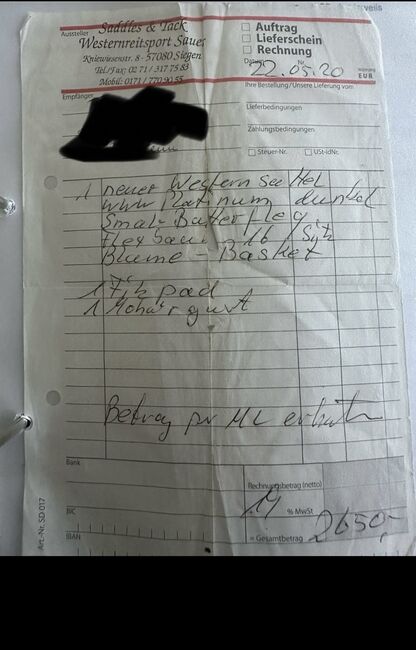 Aussteller
Saddles & Tack
Westernreitsport Sauer
Kniewiesenstr. 8 - 57080 Siegen
Tel./Fax: 02 71 / 317 75 83
Mobil: 0171 / 770 90 55
Auftrag
Lieferschein
Rechnung
Datum Nr.
22.05.20
Währung
EUR
Empfänger
Ihre Bestellung/Unsere Lieferung vom
Lieferbedingungen
Zahlungsbedingungen
Steuer-Nr. USt-IdNr.
1 neuer Western Sattel
www Platinum dunkel
Small Butterfley
flex Baum 16 Sitz
Blume - Basket
1 Pad
1 Mohair gurt
Betrag erhalten
Bank
Rechnungsbetrag (netto)
BIC
19 % MwSt
IBAN
= Gesamtbetrag 2650,-
Art.-Nr. SD 017